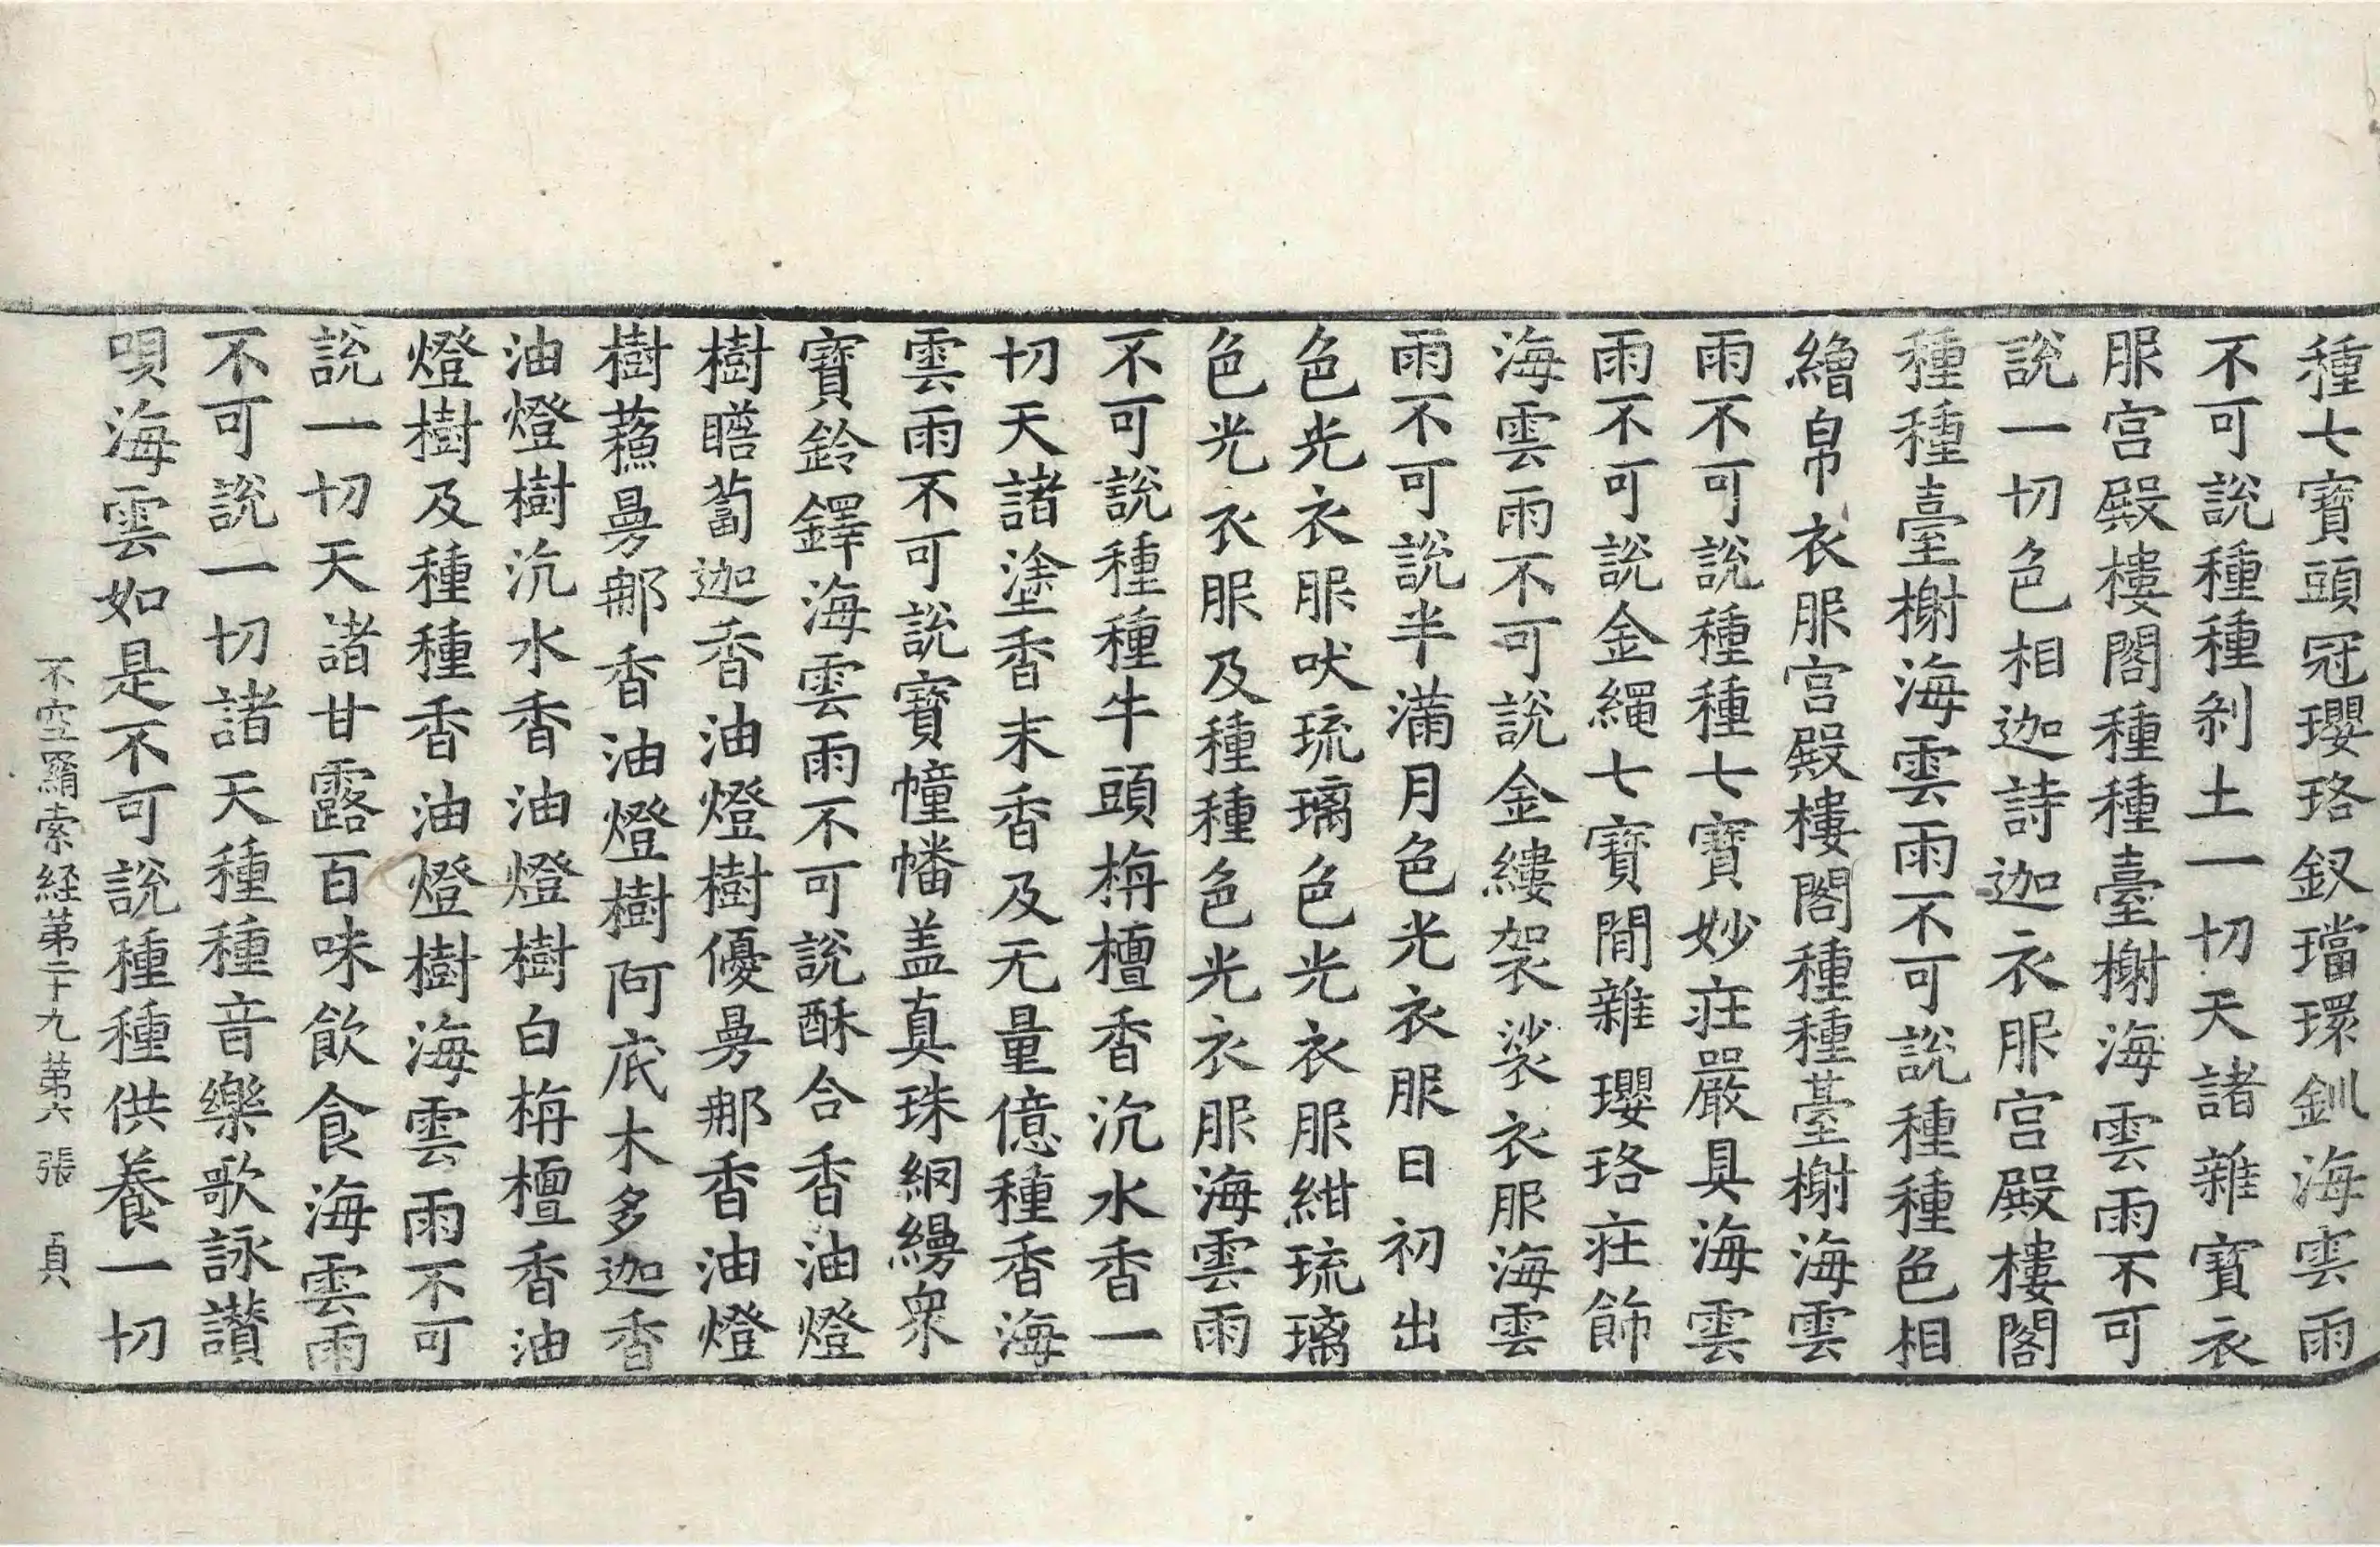 種七寶頭冠瓔珞釵璫環釧海雲雨
不可說種種剎土一切天諸雜寶衣
服宮殿樓閣種種臺榭海雲雨不可
說一切色相迦詩迦衣服宮殿樓閣
種種臺榭海雲雨不可說種種色相
繒帛衣服宮殿樓閣種種臺榭海雲
雨不可說種種七寶妙莊嚴具海雲
雨不可說金繩七寶間雜瓔珞莊飾
海雲雨不可說金縷袈裟衣服海雲
雨不可說半滿月色光衣服日初出
色光衣服吠琉璃色光衣服紺琉璃
色光衣服及種種色光衣服海雲雨
不可說種種牛頭栴檀香沉水香一
切天諸塗香末香及无量億種香海
雲雨不可說寶幢幡盖真珠網縵衆
寶鈴鐸海雲雨不可說酥合香油燈
樹瞻蔔迦香油燈樹優曼那香油燈
樹蘓曼那香油燈樹阿底木多迦香
油燈樹沉水香油燈樹白栴檀香油
燈樹及種種香油燈樹海雲雨不可
說一切天諸甘露百味飲食海雲雨
不可說一切諸天種種音樂歌詠讚
唄海雲如是不可說種種供養一切
不空羂索経第二十九第六張 貞